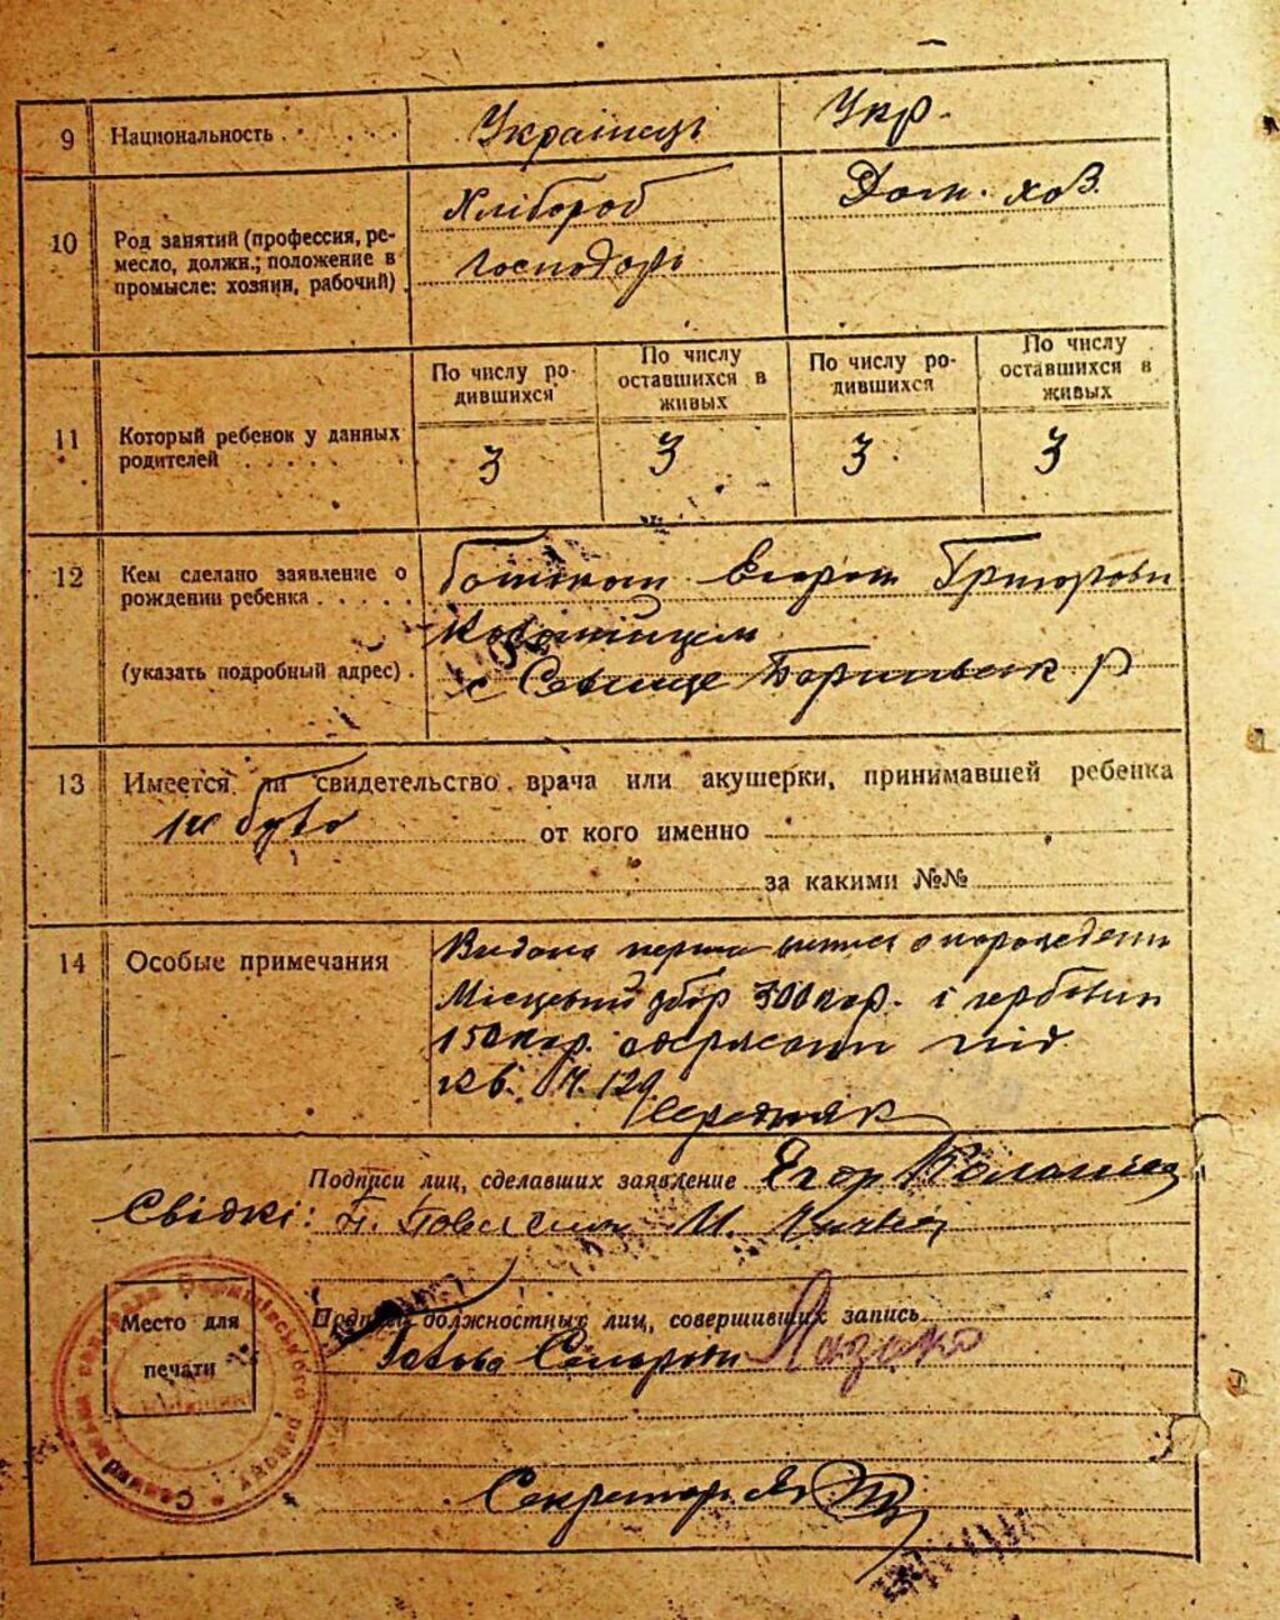 9 Национальность . . . . . . Українець Укр.
10 Род занятий (профессия, ре-
месло, должн.; положение в
промысле: хозяин, рабочий)
Хлібороб Дом. хоз.
господарь
11 Который ребенок у данных
родителей . . . . . .
По числу ро-
дившихся
По числу
оставшихся в
живых
По числу ро-
дившихся
По числу
оставшихся в
живых
3 3 3 3
12 Кем сделано заявление о
рождении ребенка . . . . .
(указать подробный адрес) .
Егором Григорови
с
р
13 Имеется ли свидетельство врача или акушерки, принимавшей ребенка
не було от кого именно
за какими №№
14 Особые примечания
Видана перша о народженні
Місцевий збір 300 кар. і гербовий
150 кар. під
кв. 129
Середняк
Подписи лиц, сделавших заявление Ягор
Свідкі: И.
Место для
печати
Подписи должностных лиц, совершивших запись
Голова Сельради
Секретар